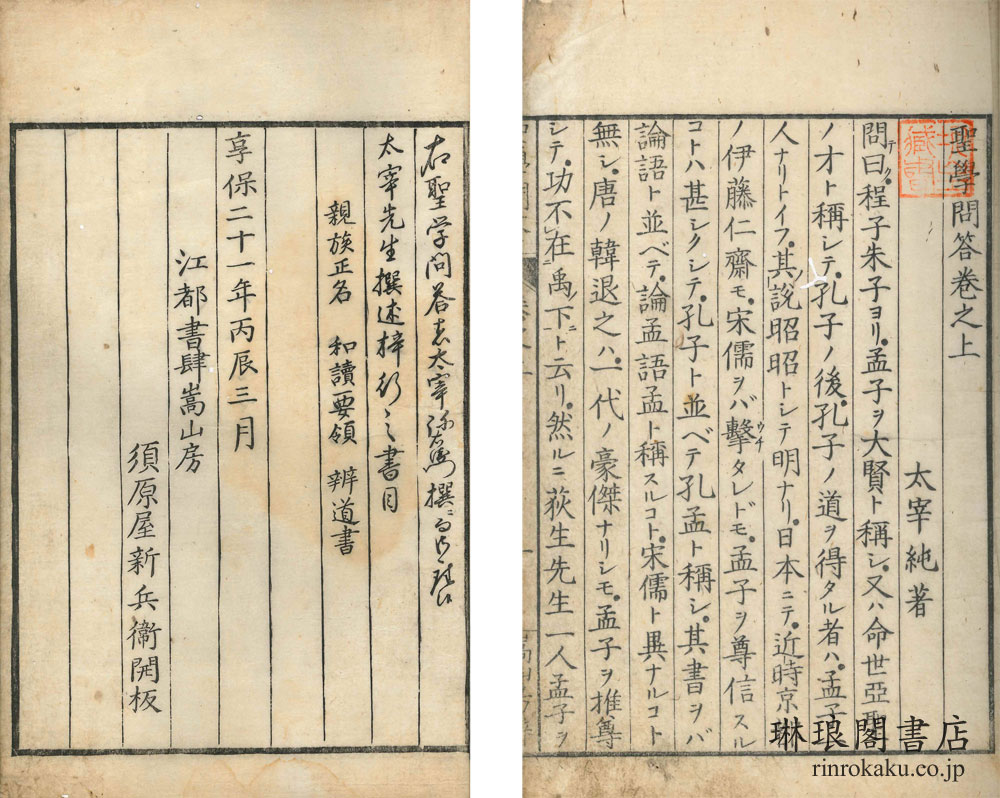 聖學問答卷之上
太宰純著
問テ曰ク程子朱子ヨリ孟子ヲ大賢ト稱シ又ハ命世亞聖
ノ才ト稱シテ孔子ノ後孔子ノ道ヲ得タル者ハ孟子
人ナリトイフ其ノ説昭昭トシテ明ナリ日本ニテ近時京
ノ伊藤仁齋モ宋儒ヲバ擊ウチタレドモ孟子ヲ尊信スル
コトハ甚シクシテ孔子ト並ベテ孔孟ト稱シ其書ヲバ
論語ト並ベテ論孟語孟ト稱スルコト宋儒ト異ナルコト
無シ唐ノ韓退之ハ一代ノ豪傑ナリシモ孟子ヲ推尊
シテ功不在禹ノ下ニト云リ然ルニ荻生先生一人孟子ヲ
右聖学問荅者太宰弥右衛門撨
太宰先生撰述梓行之書目
親族正名 和讀要領 辨道書
享保二十一年丙辰三月
江都書肆嵩山房
須原屋新兵衞開板
琳琅閣書店
rinrokaku.co.jp